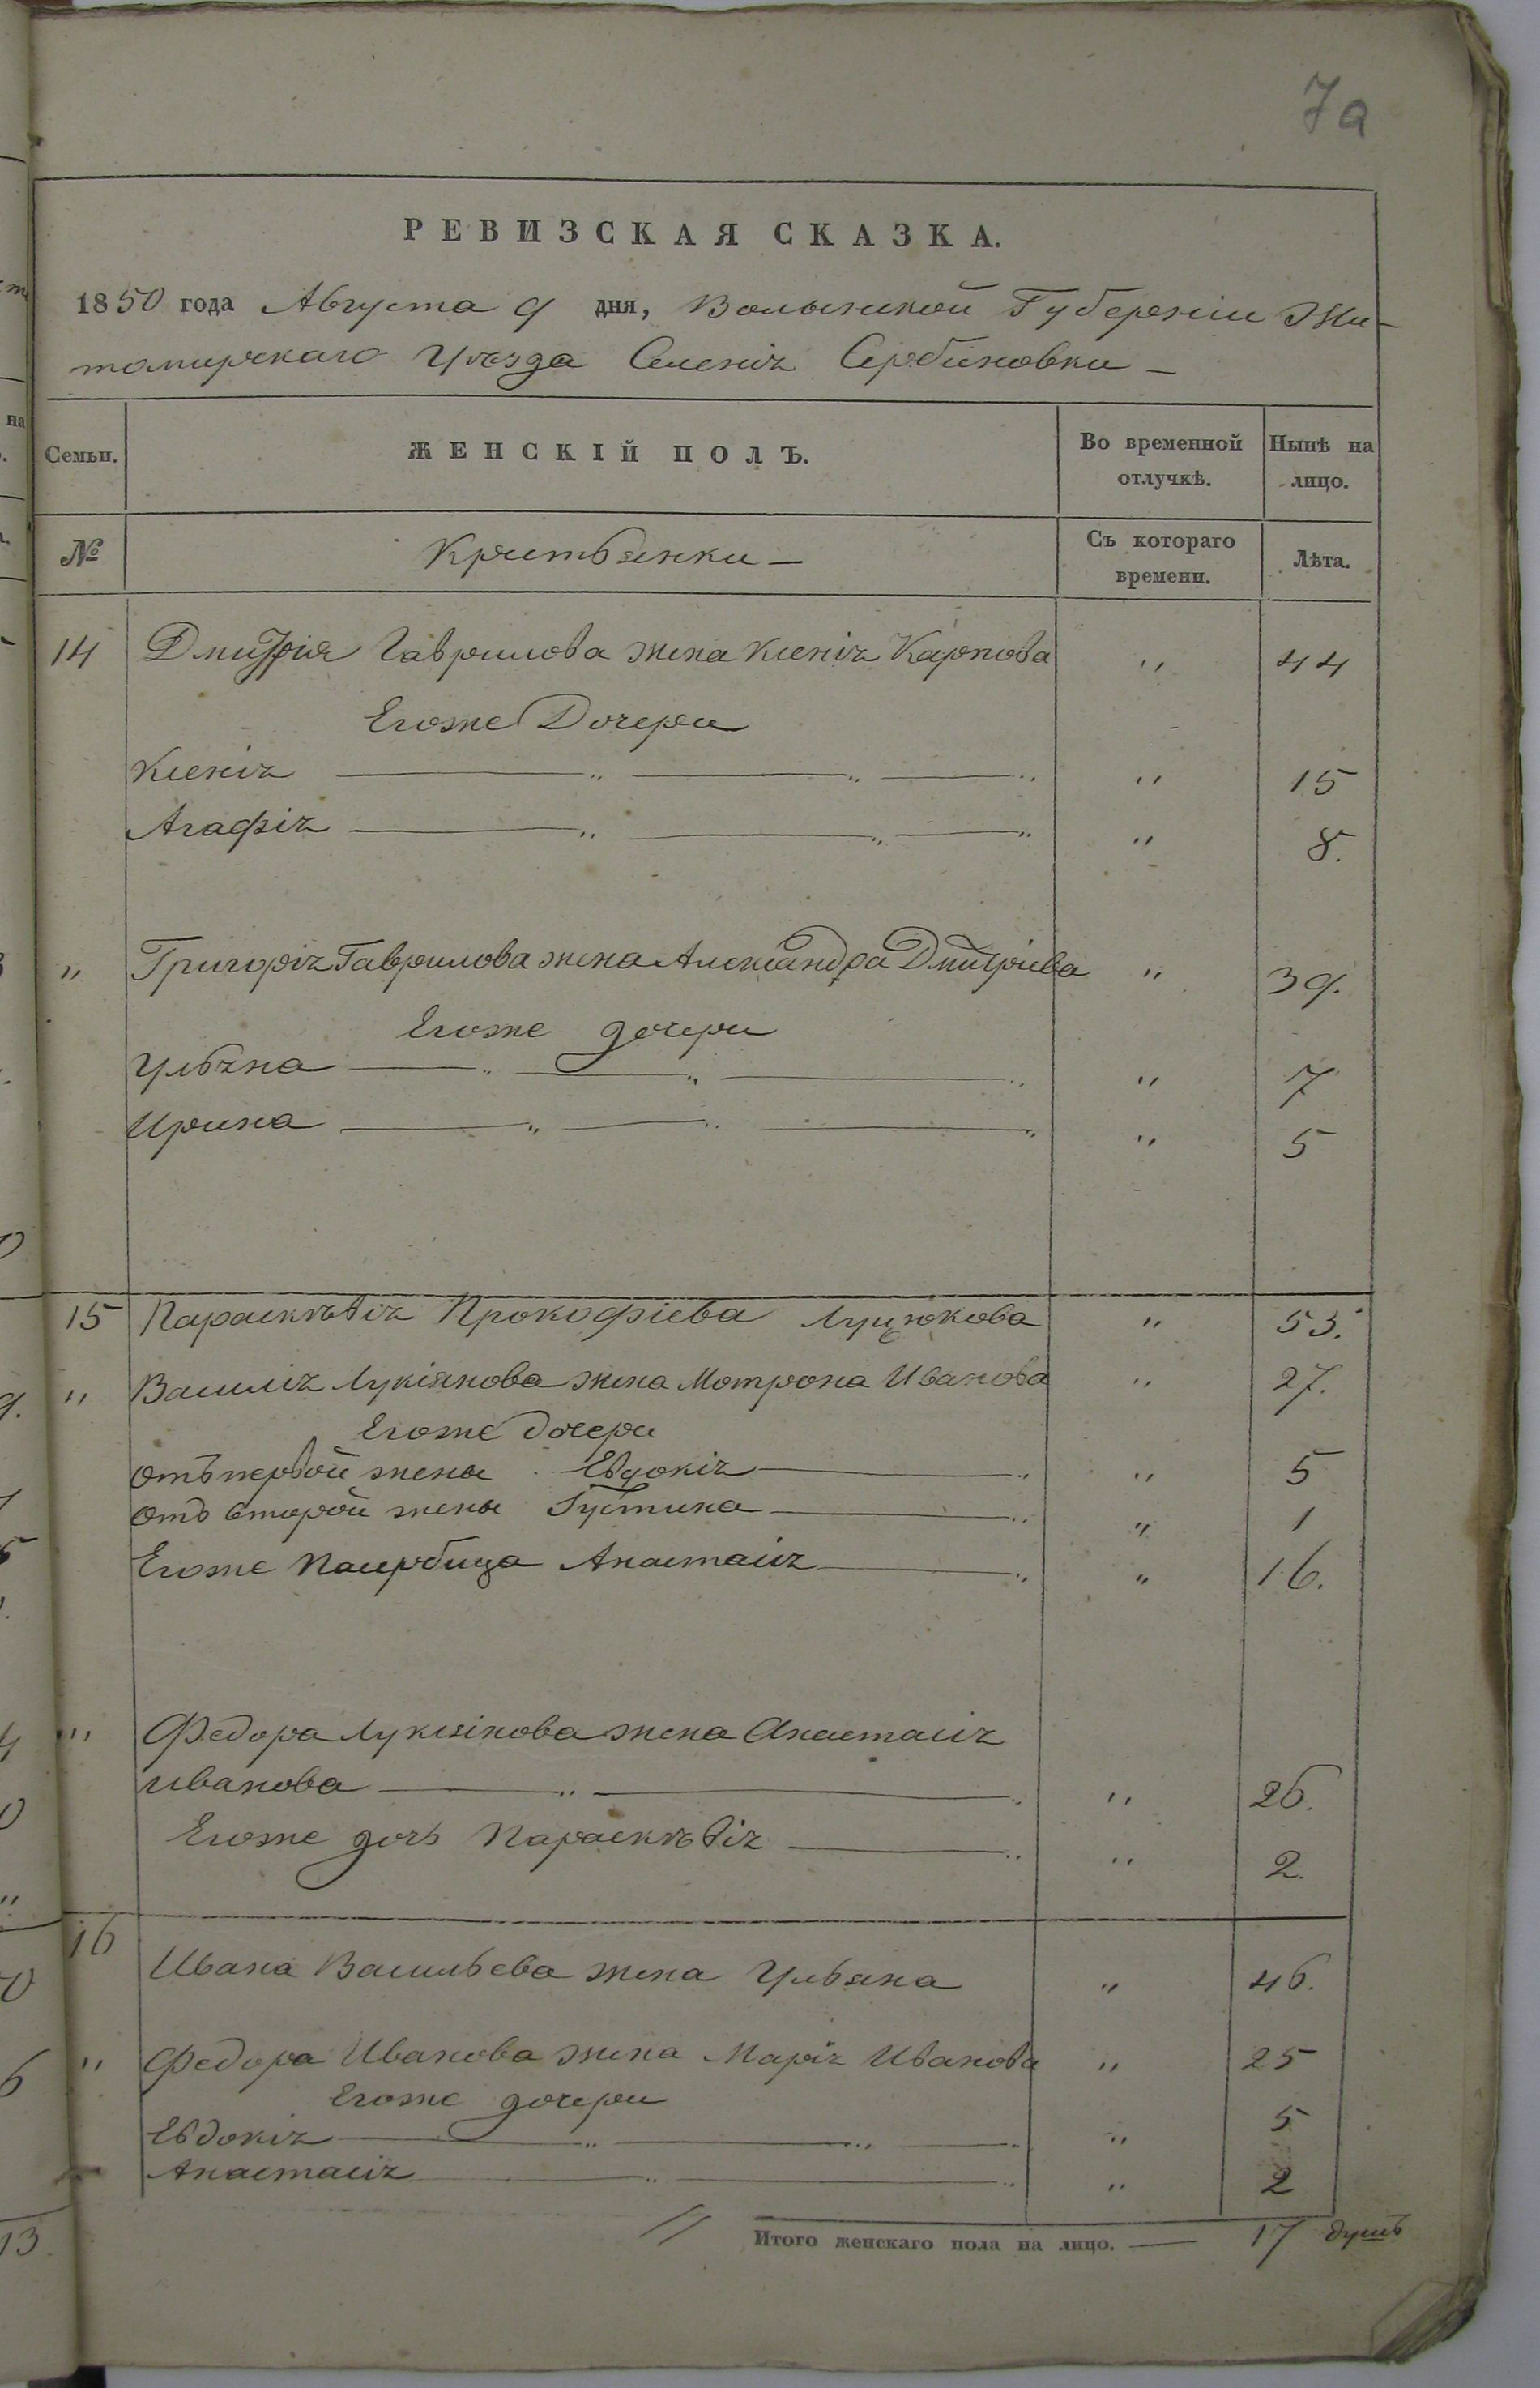 7а
РЕВИЗСКАЯ СКАЗКА.
1850 года Августа 9 дня, Волынской Губерніи Жи-
томирскаго Уѣзда Селенія Сербиновки —
Семьи. ЖЕНСКІЙ ПОЛЪ. Во временной отлучкѣ. Нынѣ на лицо.
№ Крестьянки — Съ котораго времени. Лѣта.
14 Дмитрія Гаврилова жена Ксенія Карпова " 44
Егоже Дочери
Ксенія — " — " — " " 15
Агафія — " — " — " " 8.
" Григорія Гаврилова жена Александра Дмитріева " 39.
Егоже дочери
Ульяна — " — " — " " 7
Ирина — " — " — " " 5
15 Параскѣвія Прокофіева Луцюкова " 53.
" Василія Лукіянова жена Мотрона Иванова " 27.
Егоже дочери
отъ первой жены Евдокія — " " 5
отъ второй жены Густина — " " 1
Егоже Пасербица Анастасія — " " 16.
" Федора Лукіянова жена Анастасія
Иванова — " — " " 26.
Егоже дочь Параскѣвія — " " 2.
16 Ивана Васильева жена Ульяна " 46.
" Федора Иванова жена Марія Иванова " 25
Егоже дочери
Евдокія — " — " — " " 5
Анастасія — " — " " 2
Итого женскаго пола на лицо. — 17 душъ